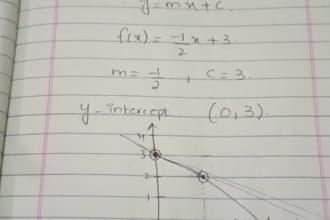 y = mx + c
f(x) = -1/2 x + 3
m = -1/2 , c = 3.
y - intercept (0, 3).
4
3
2
1